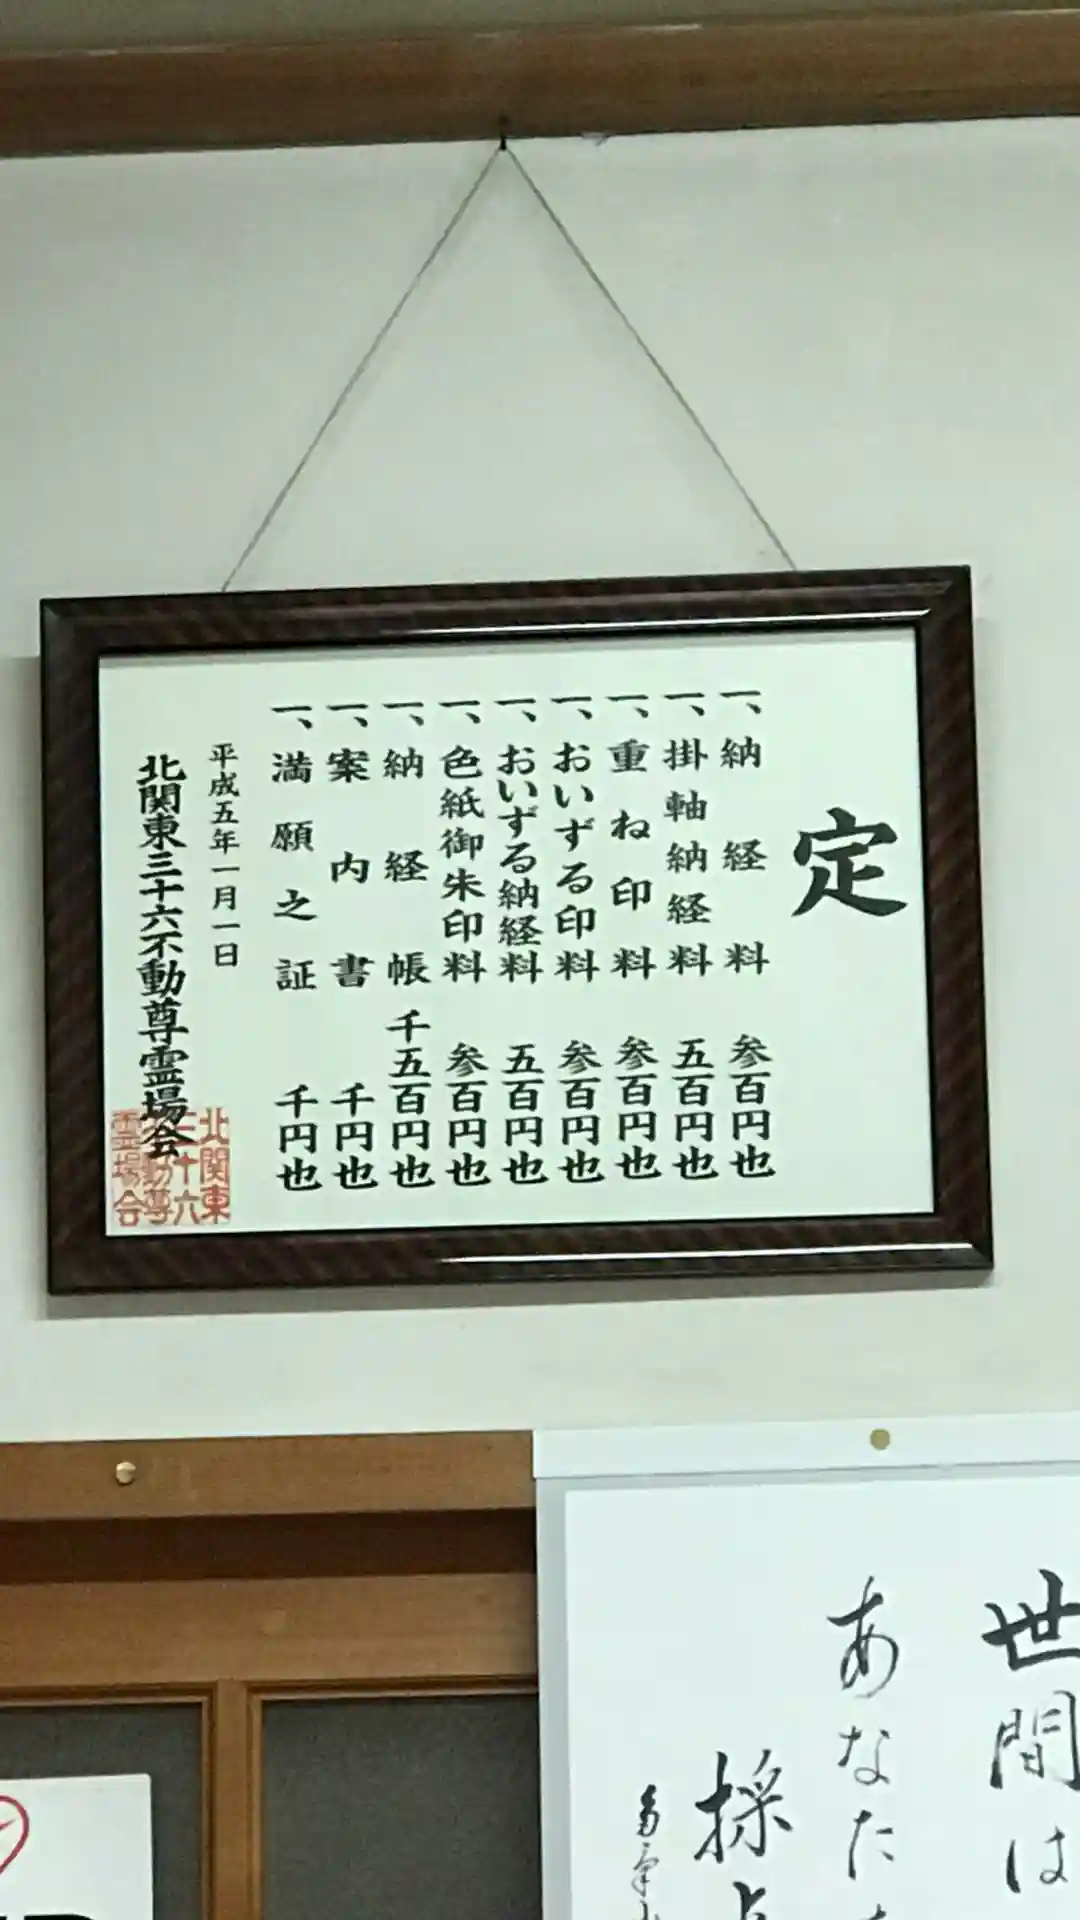 定
一、納経料 参百円也
一、掛軸納経料 五百円也
一、重ね印料 参百円也
一、おいずる印料 参百円也
一、おいずる納経料 五百円也
一、色紙御朱印料 参百円也
一、納経帳 千五百円也
一、案内書 千円也
一、満願之証 千円也
平成五年一月一日
北関東三十六不動尊霊場会
北関東
三十六
不動尊
霊場会
世間は
あなた
採点